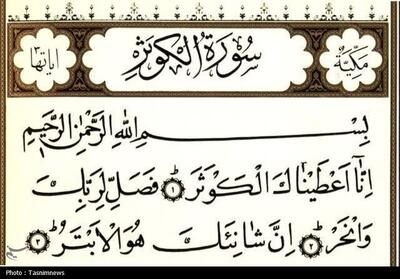 مكية سورة الكوثر اياتها ٣
بِسْمِ اللهِ الرَّحْمٰنِ الرَّحِيمِ
اِنَّا اَعْطَيْنَاكَ الْكَوْثَرَ ﴿١﴾ فَصَلِّ لِرَبِّكَ
وَانْحَرْ ﴿٢﴾ اِنَّ شَانِئَكَ هُوَ الْاَبْتَرُ ﴿٣﴾
Photo : Tasnimnews